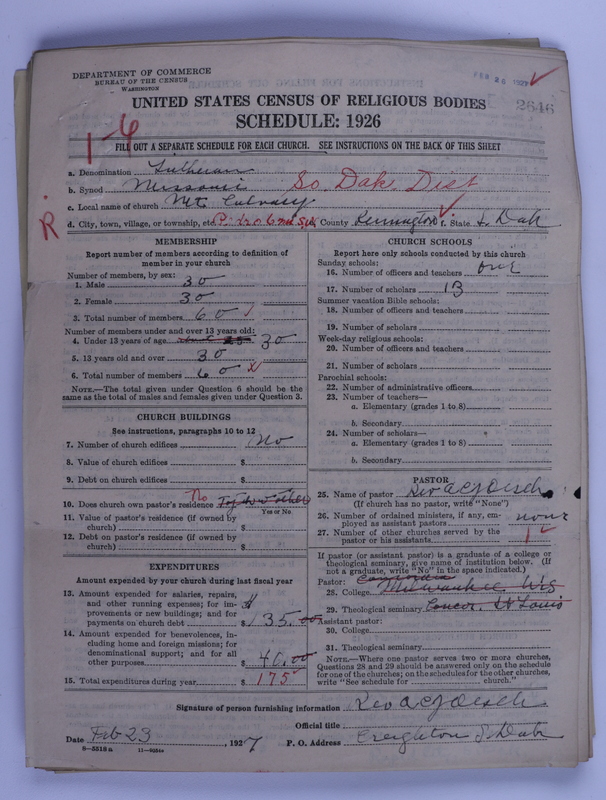 DEPARTMENT OF COMMERCE
BUREAU OF THE CENSUS
WASHINGTON
FEB 26 1927
2646
UNITED STATES CENSUS OF RELIGIOUS BODIES
SCHEDULE: 1926
1-6
FILL OUT A SEPARATE SCHEDULE FOR EACH CHURCH. SEE INSTRUCTIONS ON THE BACK OF THIS SHEET
a. Denomination Lutheran
b. Synod Missouri So. Dak. Dist
c. Local name of church Mt. Calvary
R
d. City, town, village, or township, etc. County Pennington f. State S. Dak
MEMBERSHIP
Report number of members according to definition of
member in your church
Number of members, by sex:
1. Male 30
2. Female 30
3. Total number of members 60
Number of members under and over 13 years old:
4. Under 13 years of age 30
5. 13 years old and over 30
6. Total number of members 60
NOTE.—The total given under Question 6 should be the
same as the total of males and females given under Question 3.
CHURCH BUILDINGS
See instructions, paragraphs 10 to 12
7. Number of church edifices No
8. Value of church edifices $
9. Debt on church edifices $
10. Does church own pastor's residence No
Yes or No
11. Value of pastor's residence (if owned by
church) $
12. Debt on pastor's residence (if owned by
church) $
EXPENDITURES
Amount expended by your church during last fiscal year
13. For salaries, repairs,
and other running expenses; for im-
provements or new buildings; and for
payments on church debt $135.00
14. Amount expended for benevolences, in-
cluding home and foreign missions; for
denominational support; and for all
other purposes $40.00
15. Total expenditures during year $175
CHURCH SCHOOLS
Report here only schools conducted by this church
Sunday schools:
16. Number of officers and teachers one
17. Number of scholars 13
Summer vacation Bible schools:
18. Number of officers and teachers
19. Number of scholars
Week-day religious schools:
20. Number of officers and teachers
21. Number of scholars
Parochial schools:
22. Number of administrative officers
23. Number of teachers—
a. Elementary (grades 1 to 8)
b. Secondary
24. Number of scholars—
a. Elementary (grades 1 to 8)
b. Secondary
PASTOR
25. Name of pastor Rev A C J Oesch
(If church has no pastor, write "None")
26. Number of ordained ministers, if any, em-
ployed as assistant pastors none
27. Number of other churches served by the
pastor or his assistants 1
If pastor (or assistant pastor) is a graduate of a college or
theological seminary, give name of institution below. (If
not a graduate, write "No" in the space indicated.)
Pastor: Concordia
28. College Milwaukee Wis
29. Theological seminary Concor. St Louis
Assistant pastor:
30. College
31. Theological seminary
NOTE.—Where one pastor serves two or more churches,
Questions 28 and 29 should be answered only on the schedule
for one of the churches; on the schedules for the other churches,
write "See schedule for church."
Signature of person furnishing information Rev A C J Oesch
Official title
Date Feb 23, 1927 P. O. Address Creighton S. Dak
8-5518a 11-9054a